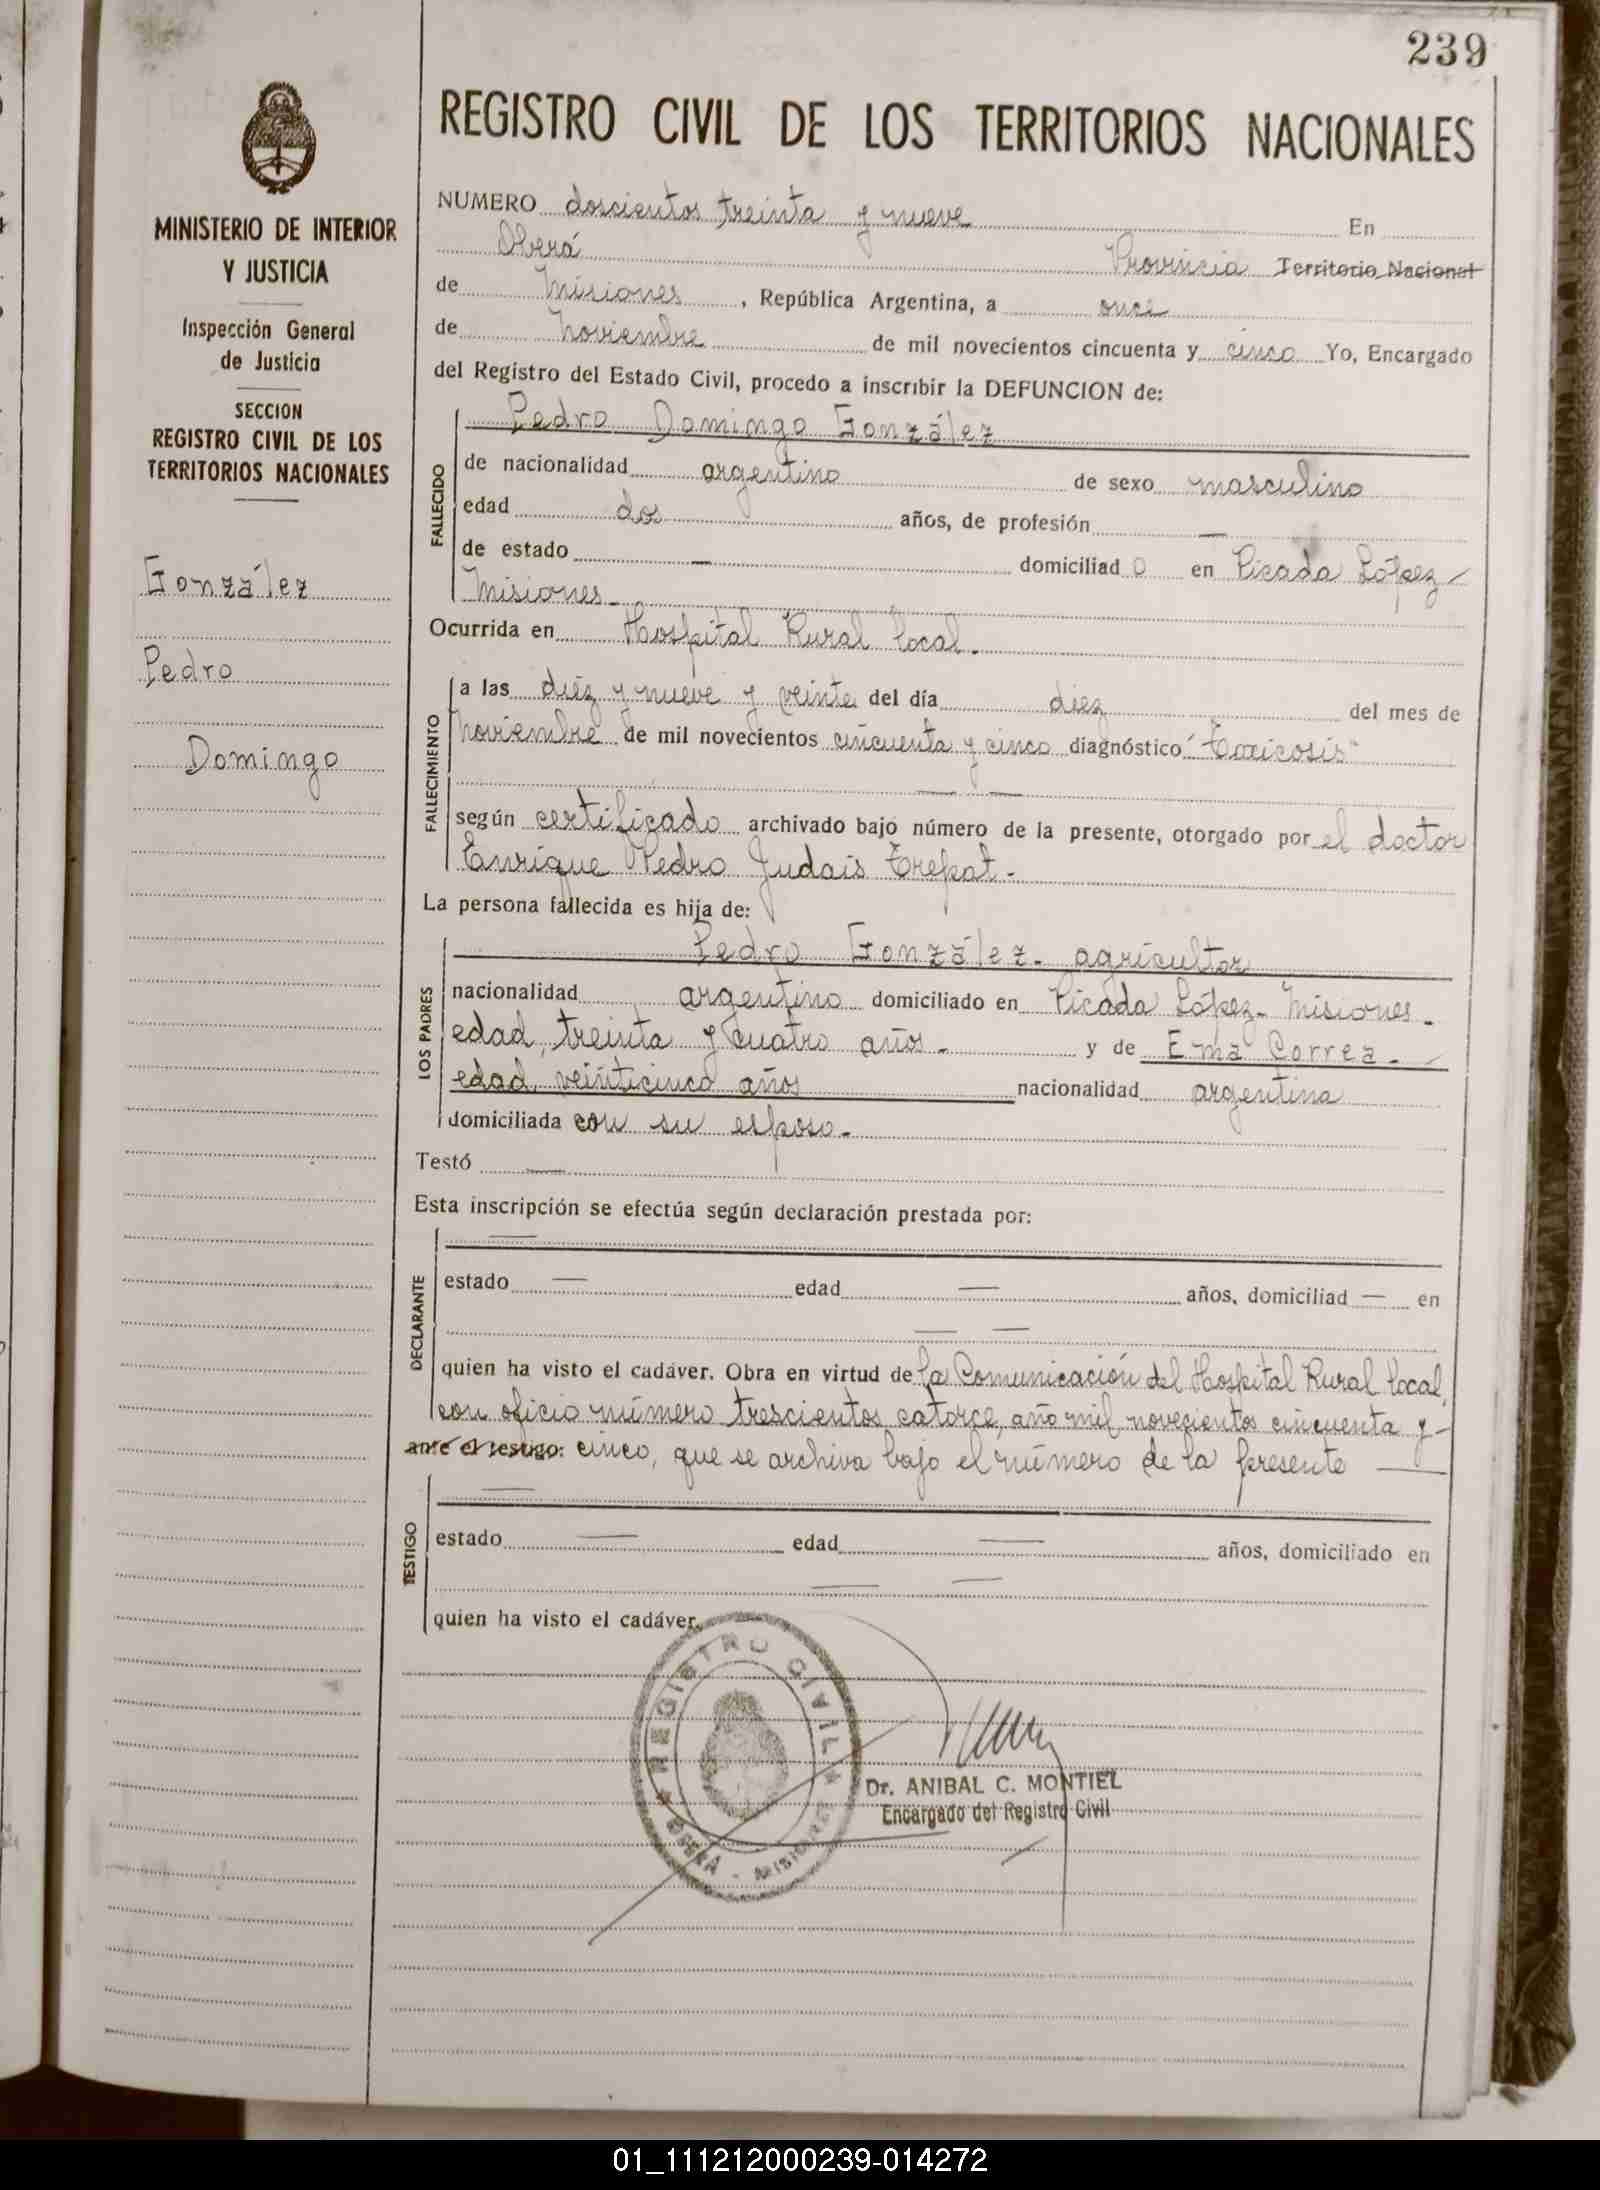 239
REGISTRO CIVIL DE LOS TERRITORIOS NACIONALES
MINISTERIO DE INTERIOR
Y JUSTICIA
Inspección General
de Justicia
SECCION
REGISTRO CIVIL DE LOS
TERRITORIOS NACIONALES
González
Pedro
Domingo
NUMERO doscientos treinta y nueve En
Oberá Provincia Territorio Nacional
de Misiones, República Argentina, a once
de Noviembre de mil novecientos cincuenta y cinco Yo, Encargado
del Registro del Estado Civil, procedo a inscribir la DEFUNCION de:
FALLECIDO
Pedro Domingo González
de nacionalidad argentino de sexo masculino
edad dos años, de profesión —
de estado — domiciliad o en Picada López-
Misiones-
Ocurrida en Hospital Rural local.
FALLECIMIENTO
a las diez y nueve y veinte del día diez del mes de
Noviembre de mil novecientos cincuenta y cinco diagnóstico "Toxicosis"
— —
según certificado archivado bajo número de la presente, otorgado por el doctor
Enrique Pedro Judais Trepat.-
La persona fallecida es hija de:
LOS PADRES
Pedro González. agricultor
nacionalidad argentino domiciliado en Picada López- Misiones-
edad, treinta y cuatro años.- y de Ema Correa.-
edad, veinticinco años nacionalidad argentina
domiciliada con su esposo.-
Testó —
Esta inscripción se efectúa según declaración prestada por:
DECLARANTE
—
estado — edad — años, domiciliad — en
— —
quien ha visto el cadáver. Obra en virtud de la Comunicación del Hospital Rural local,
con oficio número trescientos catorce, año mil novecientos cincuenta y-
ante el testigo: cinco, que se archiva bajo el número de la presente —
TESTIGO
—
estado — edad — años, domiciliado en
— —
quien ha visto el cadáver.
REGISTRO CIVIL
OBERA - MISIONES
Dr. ANIBAL C. MONTIEL
Encargado del Registro Civil
01_111212000239-014272